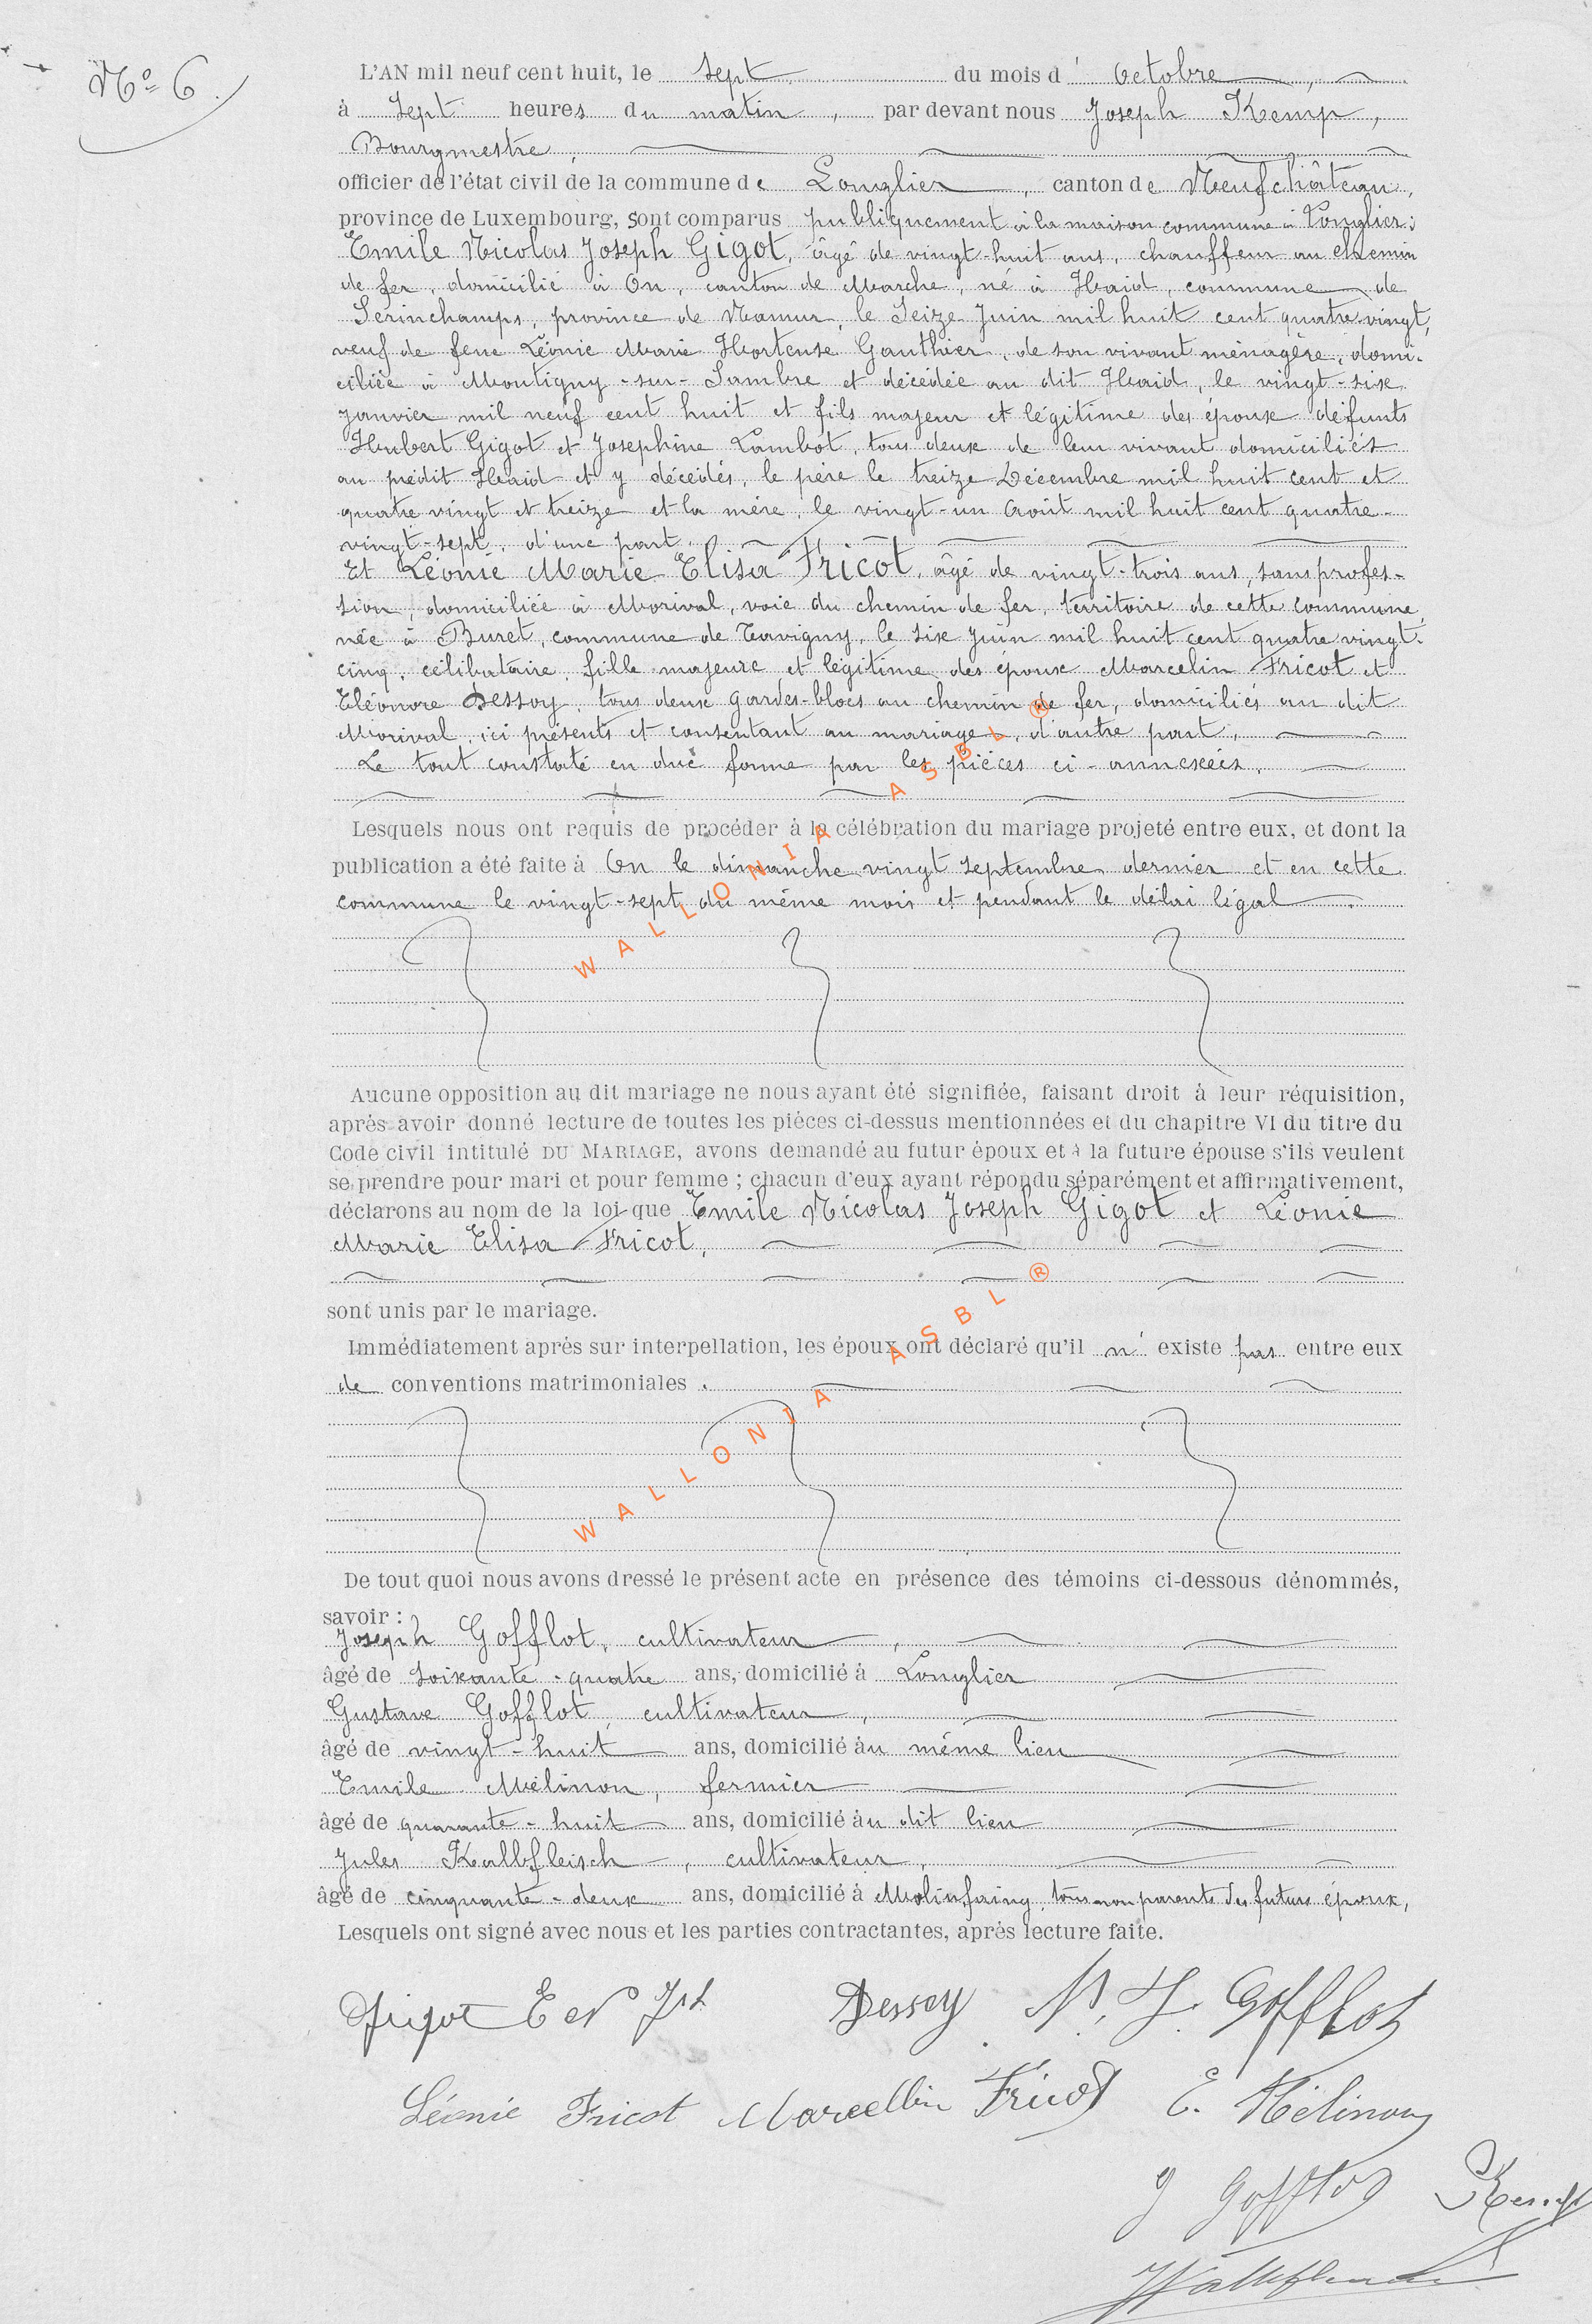 Nº 6.
L'AN mil neuf cent huit, le sept du mois d' Octobre,
à sept heures du matin, par devant nous Joseph Kemp,
Bourgmestre,
officier de l'état civil de la commune de Longlier, canton de Neufchâteau,
province de Luxembourg, sont comparus publiquement à la maison commune à Longlier:
Emile Nicolas Joseph Gigot, âgé de vingt-huit ans, chauffeur au chemin
de fer, domicilié à On, canton de Marche, né à Haid, commune de
Serinchamps, province de Namur, le Seize Juin mil huit cent quatre-vingt,
veuf de feue Léonie Marie Hortense Gauthier, de son vivant ménagère, domi-
ciliée à Montigny-sur-Sambre et décédée au dit Haid, le vingt-six
Janvier mil neuf cent huit et fils majeur et légitime des époux défunts
Hubert Gigot et Josephine Lambot, tous deux de leur vivant domiciliés
au prédit Haid et y décédés, le père le treize Décembre mil huit cent et
quatre vingt et treize et la mère, le vingt-un Août mil huit cent quatre-
vingt-sept, d'une part.
Et Léonie Marie Elisa Fricot, âgé de vingt-trois ans, sans profes-
sion, domiciliée à Morival, voie du chemin de fer, territoire de cette commune,
née à Buret, commune de Tavigny, le six Juin mil huit cent quatre vingt-
cinq, célibataire, fille majeure et légitime des époux Marcelin Fricot et
Eléonore Dessoy, tous deux gardes-blocs au chemin de fer, domiciliés au dit
Morival, ici présents et consentant au mariage, d'autre part.
Le tout constaté en due forme par les pièces ci-annexées.
Lesquels nous ont requis de procéder à la célébration du mariage projeté entre eux, et dont la
publication a été faite à On le dimanche vingt septembre dernier et en cette
commune le vingt-sept du même mois et pendant le délai légal.
WALLONIA ASBL ®
Aucune opposition au dit mariage ne nous ayant été signifiée, faisant droit à leur réquisition,
après avoir donné lecture de toutes les pièces ci-dessus mentionnées et du chapitre VI du titre du
Code civil intitulé DU MARIAGE, avons demandé au futur époux et à la future épouse s'ils veulent
se prendre pour mari et pour femme ; chacun d'eux ayant répondu séparément et affirmativement,
déclarons au nom de la loi que Emile Nicolas Joseph Gigot et Léonie
Marie Elisa Fricot,
sont unis par le mariage.
Immédiatement après sur interpellation, les époux ont déclaré qu'il n' existe pas entre eux
de conventions matrimoniales.
WALLONIA ASBL ®
De tout quoi nous avons dressé le présent acte en présence des témoins ci-dessous dénommés,
savoir :
Joseph Gofflot, cultivateur,
âgé de soixante-quatre ans, domicilié à Longlier
Gustave Gofflot, cultivateur,
âgé de vingt-huit ans, domicilié àu même lieu
Emile Mélinon, fermier
âgé de quarante-huit ans, domicilié àu dit lieu
Jules Kalbfleisch, cultivateur,
âgé de cinquante-deux ans, domicilié à Molinfaing, tous non parents des futurs époux,
Lesquels ont signé avec nous et les parties contractantes, après lecture faite.
Gigot E N Jph Dessoy N. J. Gofflot
Léonie Fricot Marcellin Fricot E. Mélinon
g Gofflot Kemp